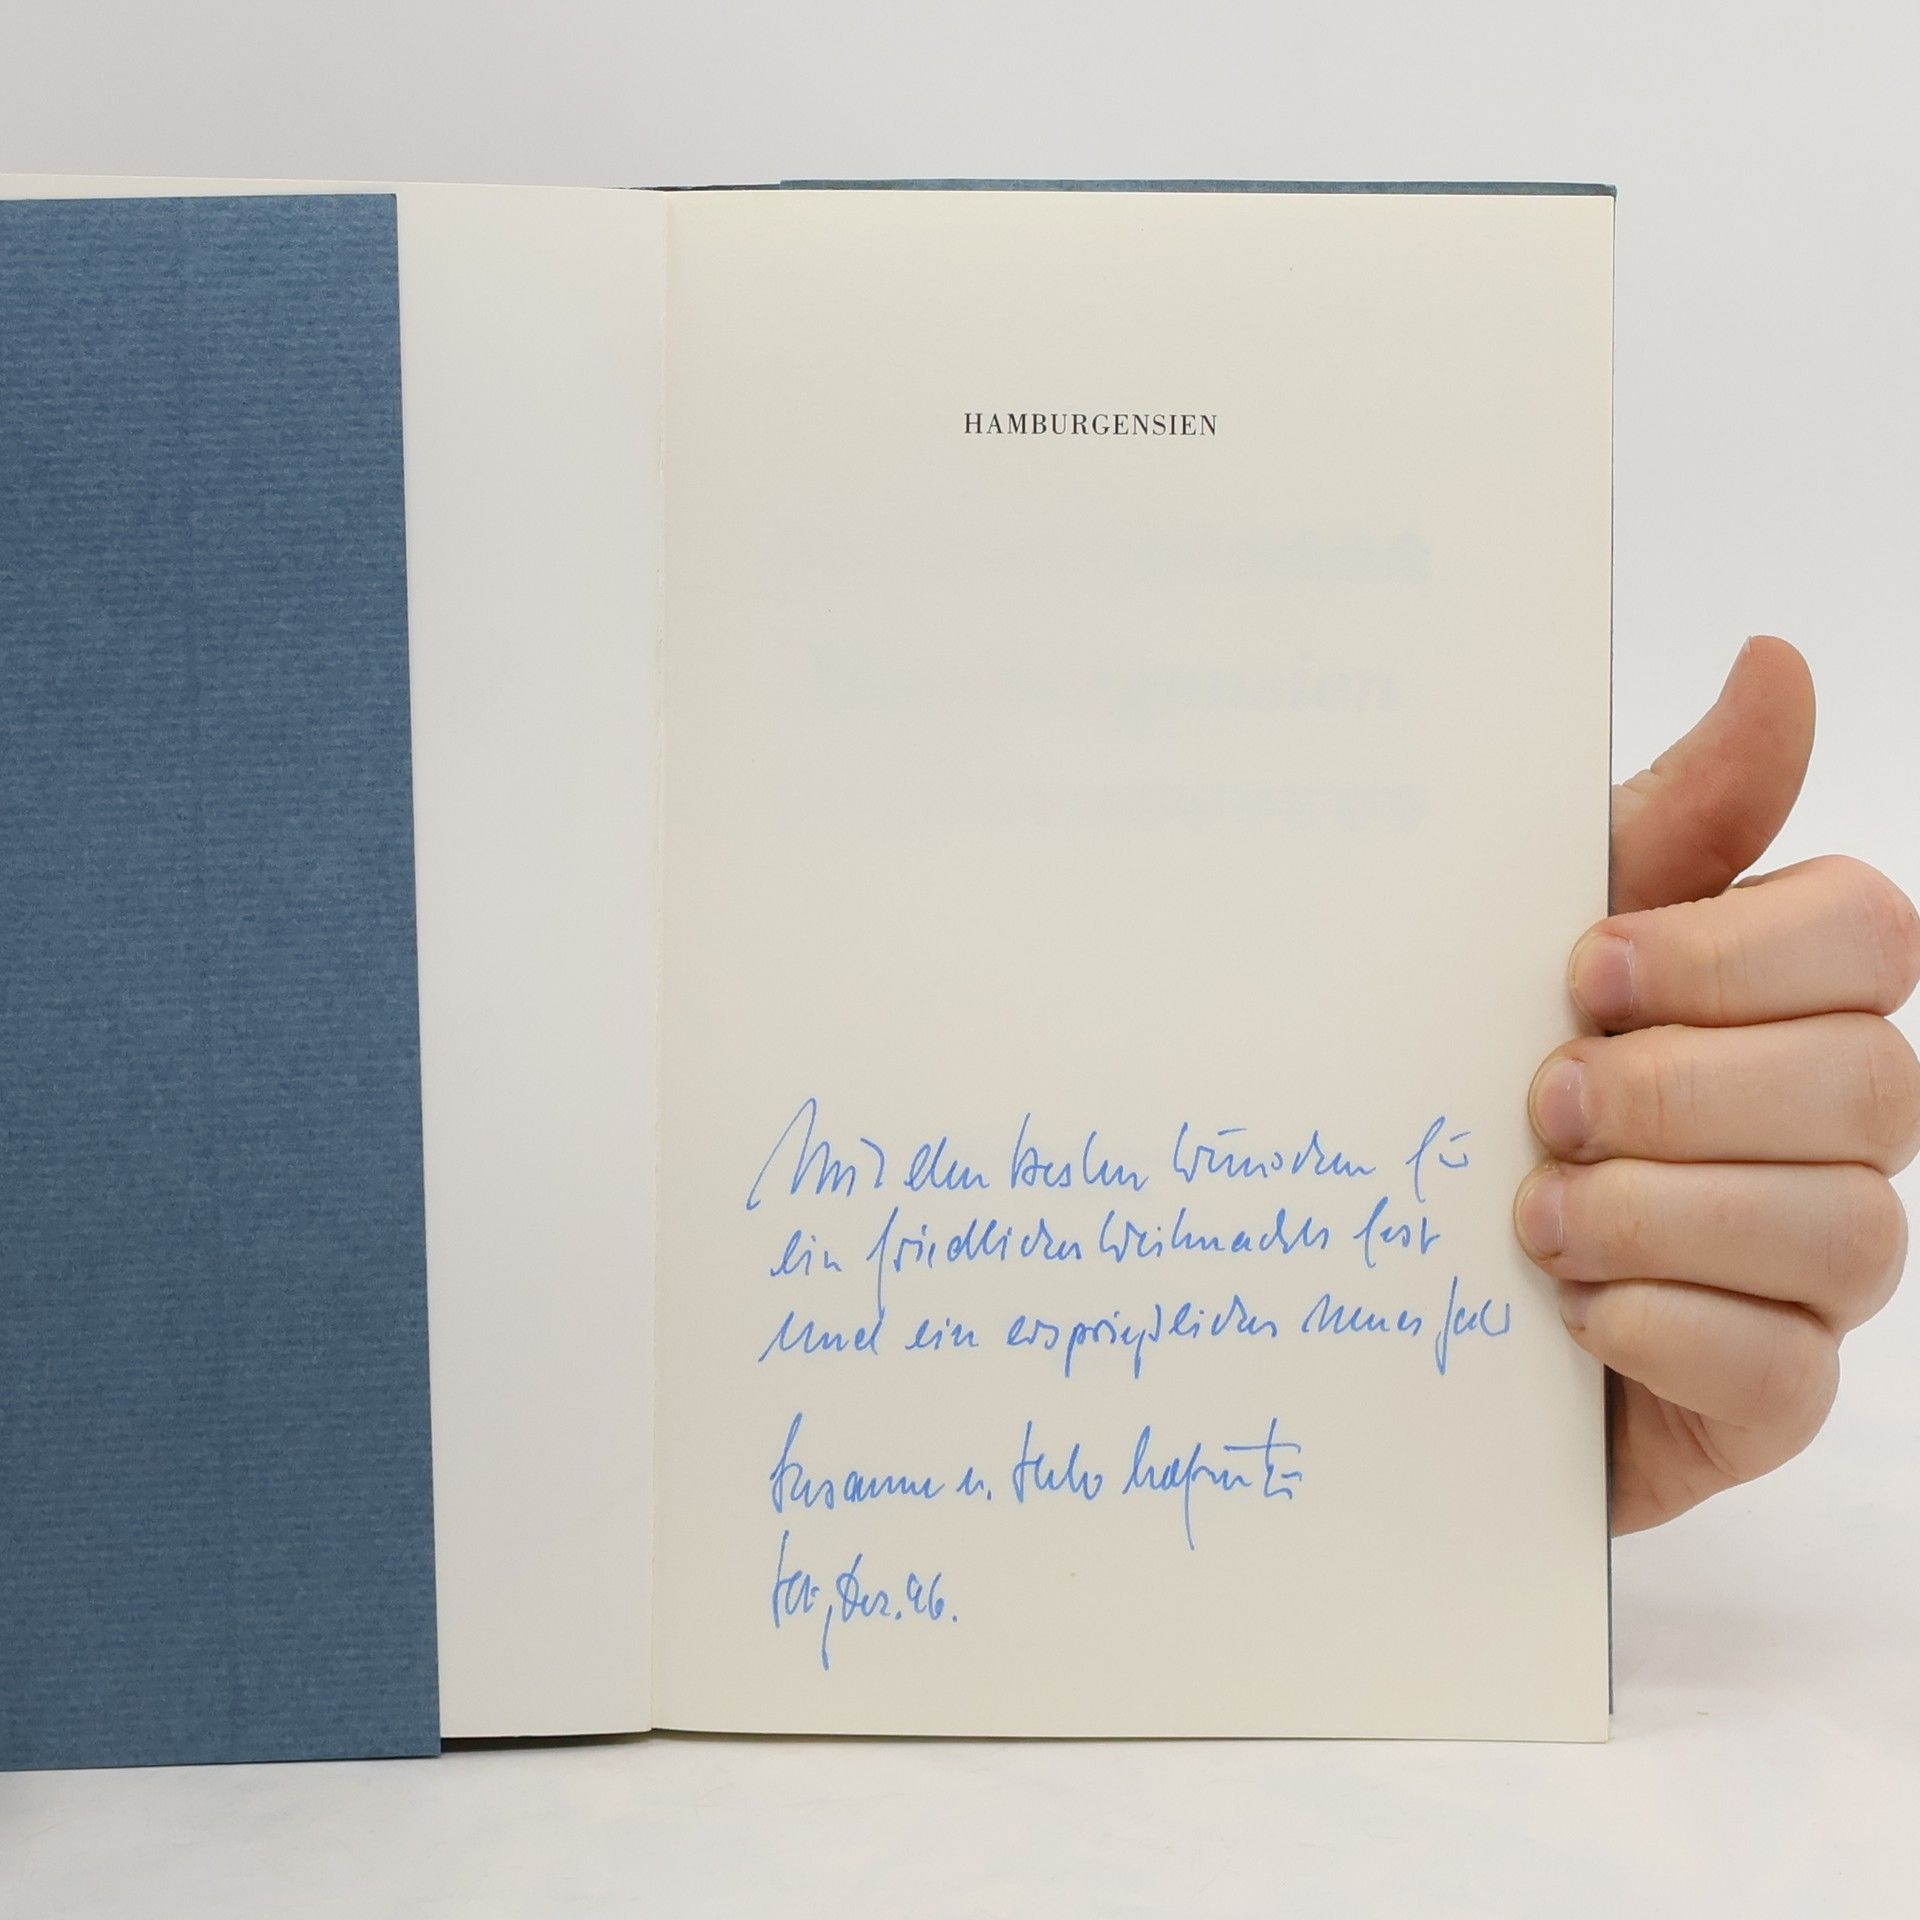 HAMBURGENSIEN
Mit den besten Wünschen für
ein friedliches Weihnachtsfest
und ein ersprießliches Neues Jahr
Susanne u.
Dez. 96.